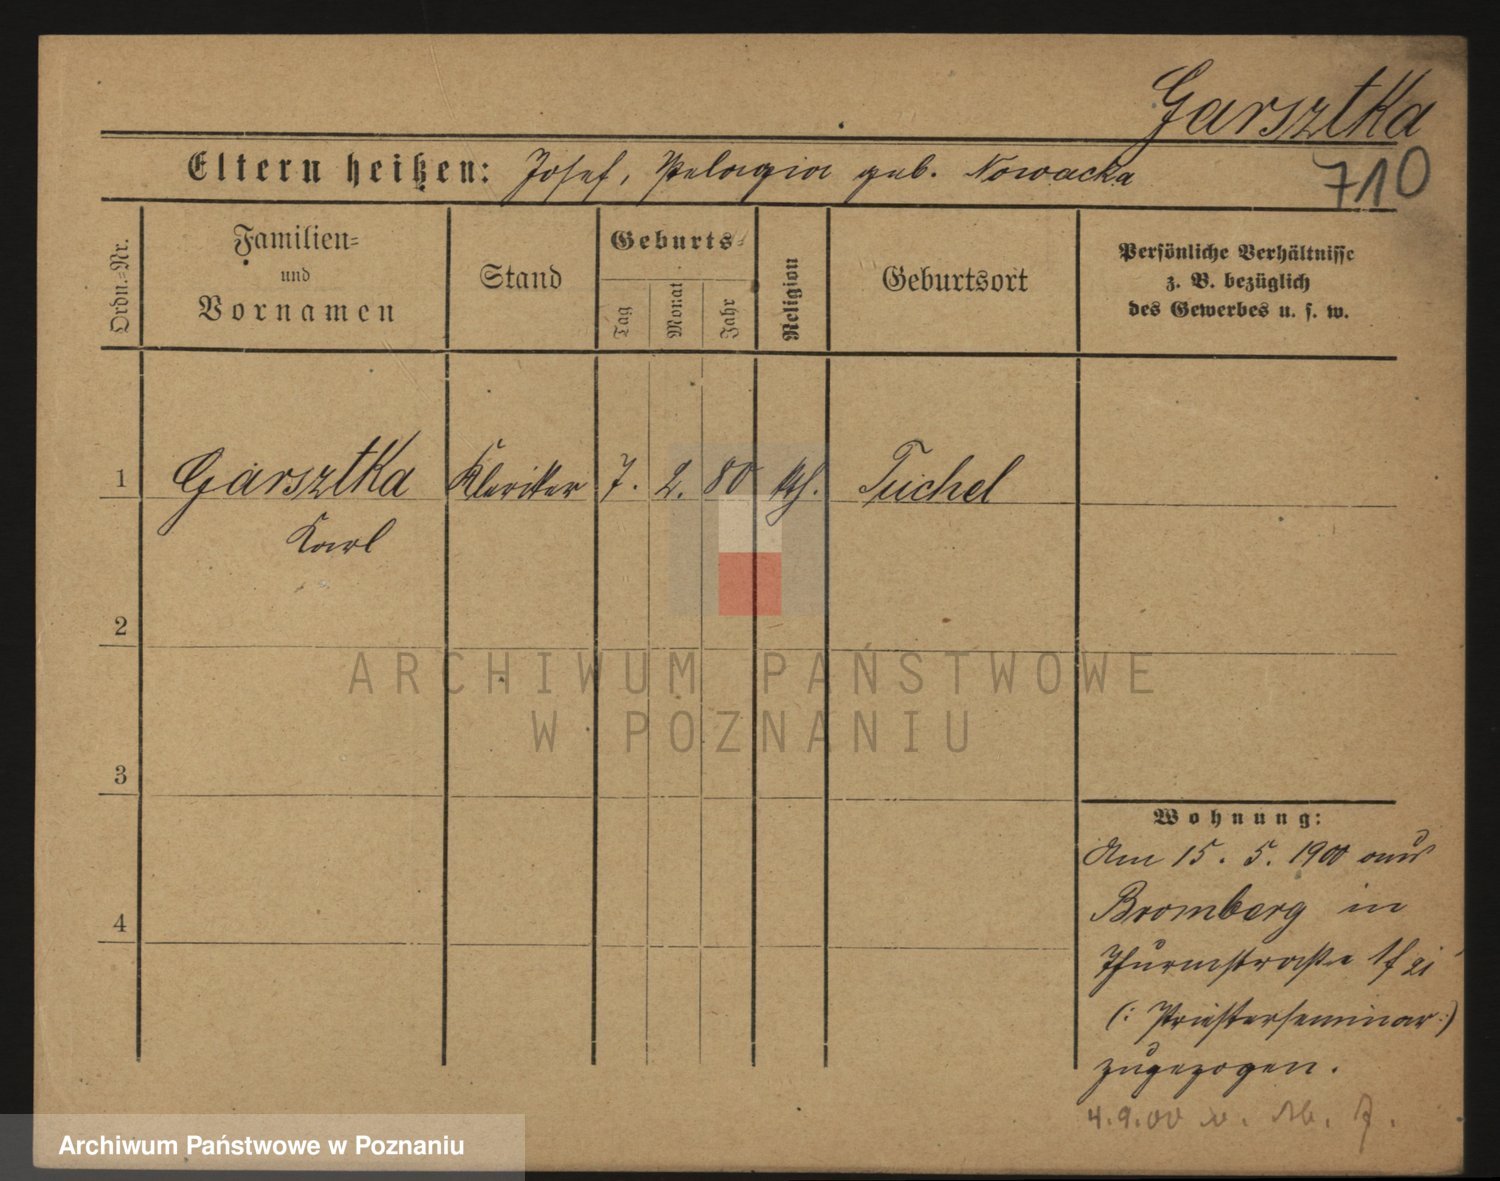 Garsztka
710
Eltern heißen: Josef, Pelagia geb. Nowacka
Ordn.-Nr.
Familien-
und
Vornamen
Stand
Geburts-
Tag
Monat
Jahr
Religion
Geburtsort
Persönliche Verhältnisse
z. B. bezüglich
des Gewerbes u. s. w.
1 Garsztka Kleriker 7. 2. 80 kth. Tuchel
Karl
2
3
4
Wohnung:
Am 15. 5. 1900 aus
Bromberg in
Thurmstraße
(: Priesterseminar :)
zugezogen.
4.9.00
ARCHIWUM PAŃSTWOWE
W POZNANIU
Archiwum Państwowe w Poznaniu